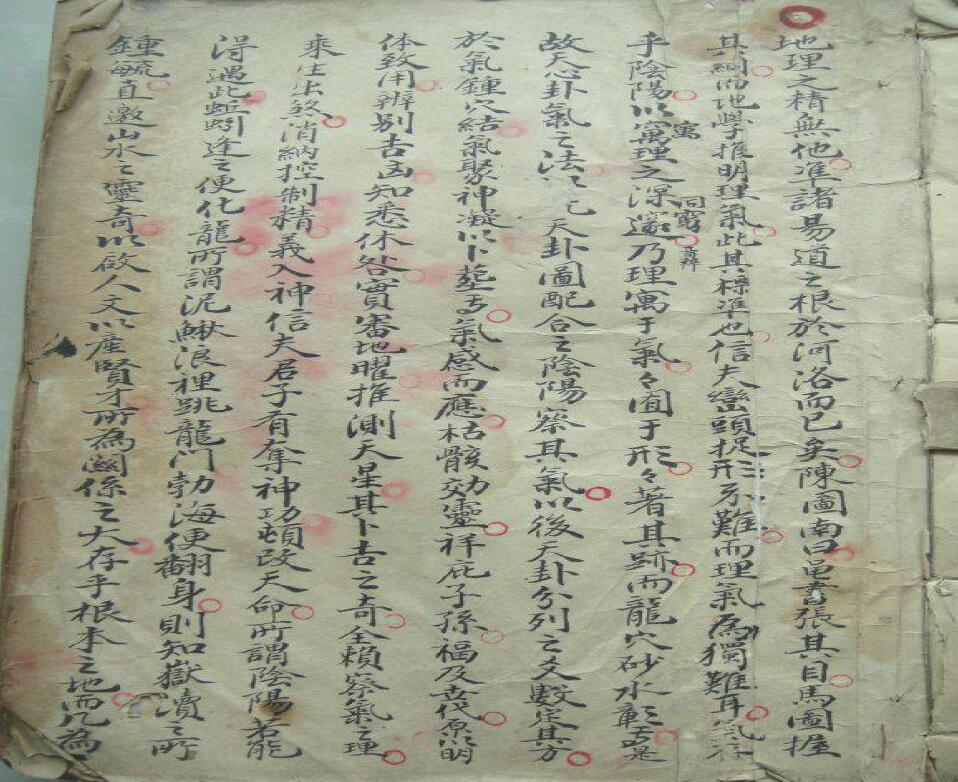 地理之精無他准諸易道之根於河洛而已矣陳圖南曰邑書張其目馬圖握
其綱而地學推明理氣此其標準也信夫巒頭捉形不難而理氣為獨難耳氣行
乎陰陽以寓理之深邃乃理寓于氣々囿于形々著其跡而龍穴砂水彰焉是
故天心卦氣之法以先天卦圖配合之陰陽察其氣以後天卦分列之爻數定其方
於氣鍾穴結氣聚神凝以卜塟焉氣感而應枯骸効靈祥庇子孫福及世代原以明
体致用辨别吉凶知悉休咎實審地曜推測天星其卜吉之奇全賴察氣之理
來生出煞消納控制精義入神信夫君子有奪神功頓改天命所謂陰陽若能
淂遇此蚯蚓逢之便化龍所謂泥鰍浪裡跳龍門勃海便翻身則知嶽瀆之所
鍾毓直邀山水之靈奇以啟人文以產賢才所為關係之大存乎根本之地而凡為